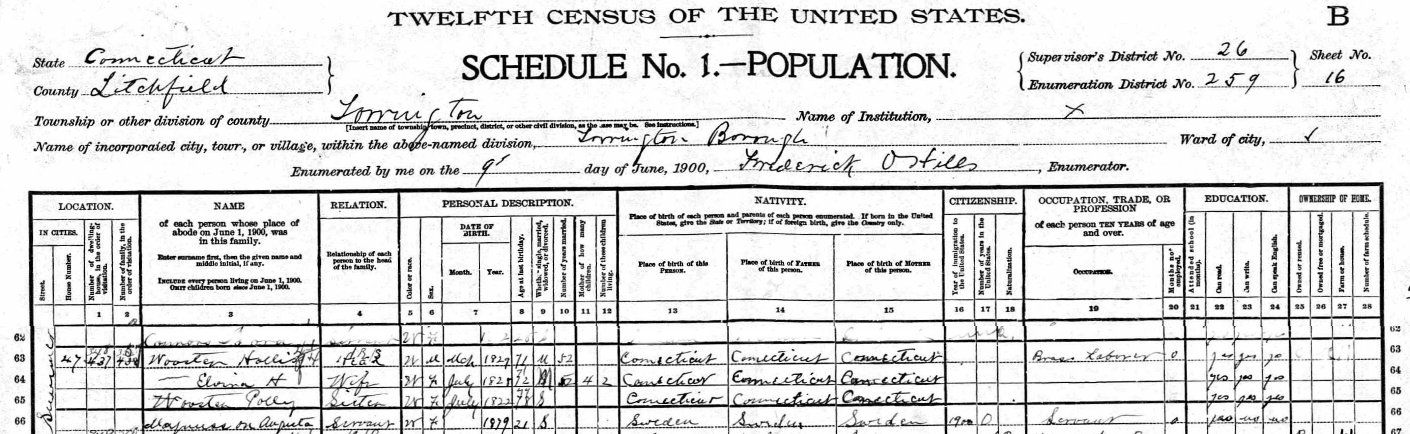 TWELFTH CENSUS OF THE UNITED STATES.
B
State Connecticut
County Litchfield
SCHEDULE No. 1.—POPULATION.
Supervisor's District No. 26
Enumeration District No. 259
Sheet No.
16
Township or other division of county Torrington
[Insert name of township, town, precinct, district, or other civil division, as the case may be. See instructions.]
Name of Institution, X
Name of incorporated city, town, or village, within the above-named division, Torrington Borough
Ward of city, ✓
Enumerated by me on the 9 day of June, 1900, Frederick O Hills, Enumerator.
LOCATION.
IN CITIES.
Street.
House Number.
Number of dwelling-house, in the order of visitation.
Number of family, in the order of visitation.
NAME
of each person whose place of abode on June 1, 1900, was in this family.
Enter surname first, then the given name and middle initial, if any.
INCLUDE every person living on June 1, 1900.
OMIT children born since June 1, 1900.
RELATION.
Relationship of each person to the head of the family.
PERSONAL DESCRIPTION.
Color or race.
Sex.
DATE OF BIRTH.
Month.
Year.
Age at last birthday.
Whether single, married, widowed, or divorced.
Number of years married.
Mother of how many children.
Number of these children living.
NATIVITY.
Place of birth of each person and parents of each person enumerated. If born in the United States, give the State or Territory; if of foreign birth, give the Country only.
Place of birth of this PERSON.
Place of birth of FATHER of this person.
Place of birth of MOTHER of this person.
CITIZENSHIP.
Year of immigration to the United States.
Number of years in the United States.
Naturalization.
OCCUPATION, TRADE, OR PROFESSION
of each person TEN YEARS of age and over.
OCCUPATION.
Months not employed.
EDUCATION.
Attended school (in months).
Can read.
Can write.
Can speak English.
OWNERSHIP OF HOME.
Owned or rented.
Owned free or mortgaged.
Farm or house.
Number of farm schedule.
1 2 3 4 5 6 7 8 9 10 11 12 13 14 15 16 17 18 19 20 21 22 23 24 25 26 27 28
62 62
63 47 437 Wooster Hollis H W M Mch 1829 71 M 52 Connecticut Connecticut Connecticut Brass Laborer 0 yes yes yes 63
64 — Elvina H Wife W F July 72 M 52 4 2 Connecticut Connecticut Connecticut yes yes yes 64
65 Wooster Polly Sister W F July 1822 77 S Connecticut Connecticut Connecticut yes yes yes 65
66 Augusta Servant W F 1879 21 S Sweden Sweden Sweden 1900 0 Servant 0 yes no no 66
67